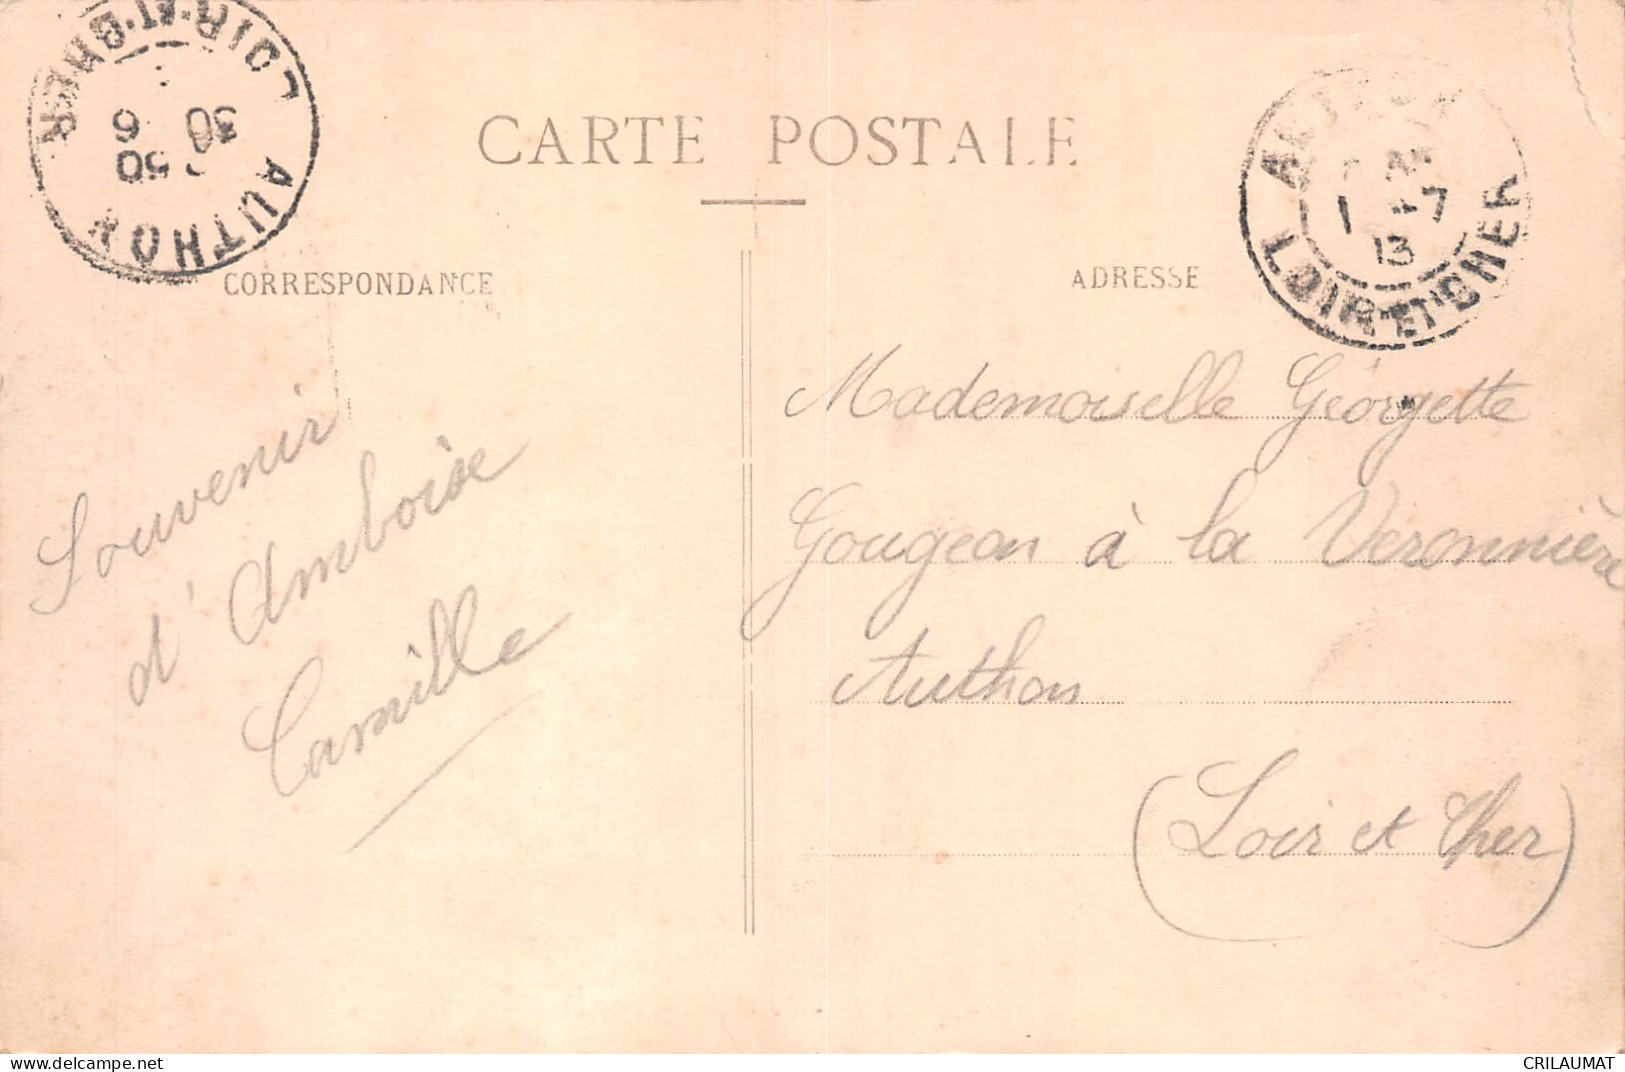 LOIR-ET-CHER
30 6
50
AUTHON
CARTE POSTALE
CORRESPONDANCE
ADRESSE
1 -7
13
LOIR-ET-CHER
Souvenir
d'Amboise
Camille
Mademoiselle Georgette
Gougeon à la Veronnière
Authon
(Loir et Cher)
www.delcampe.net
CRILAUMAT